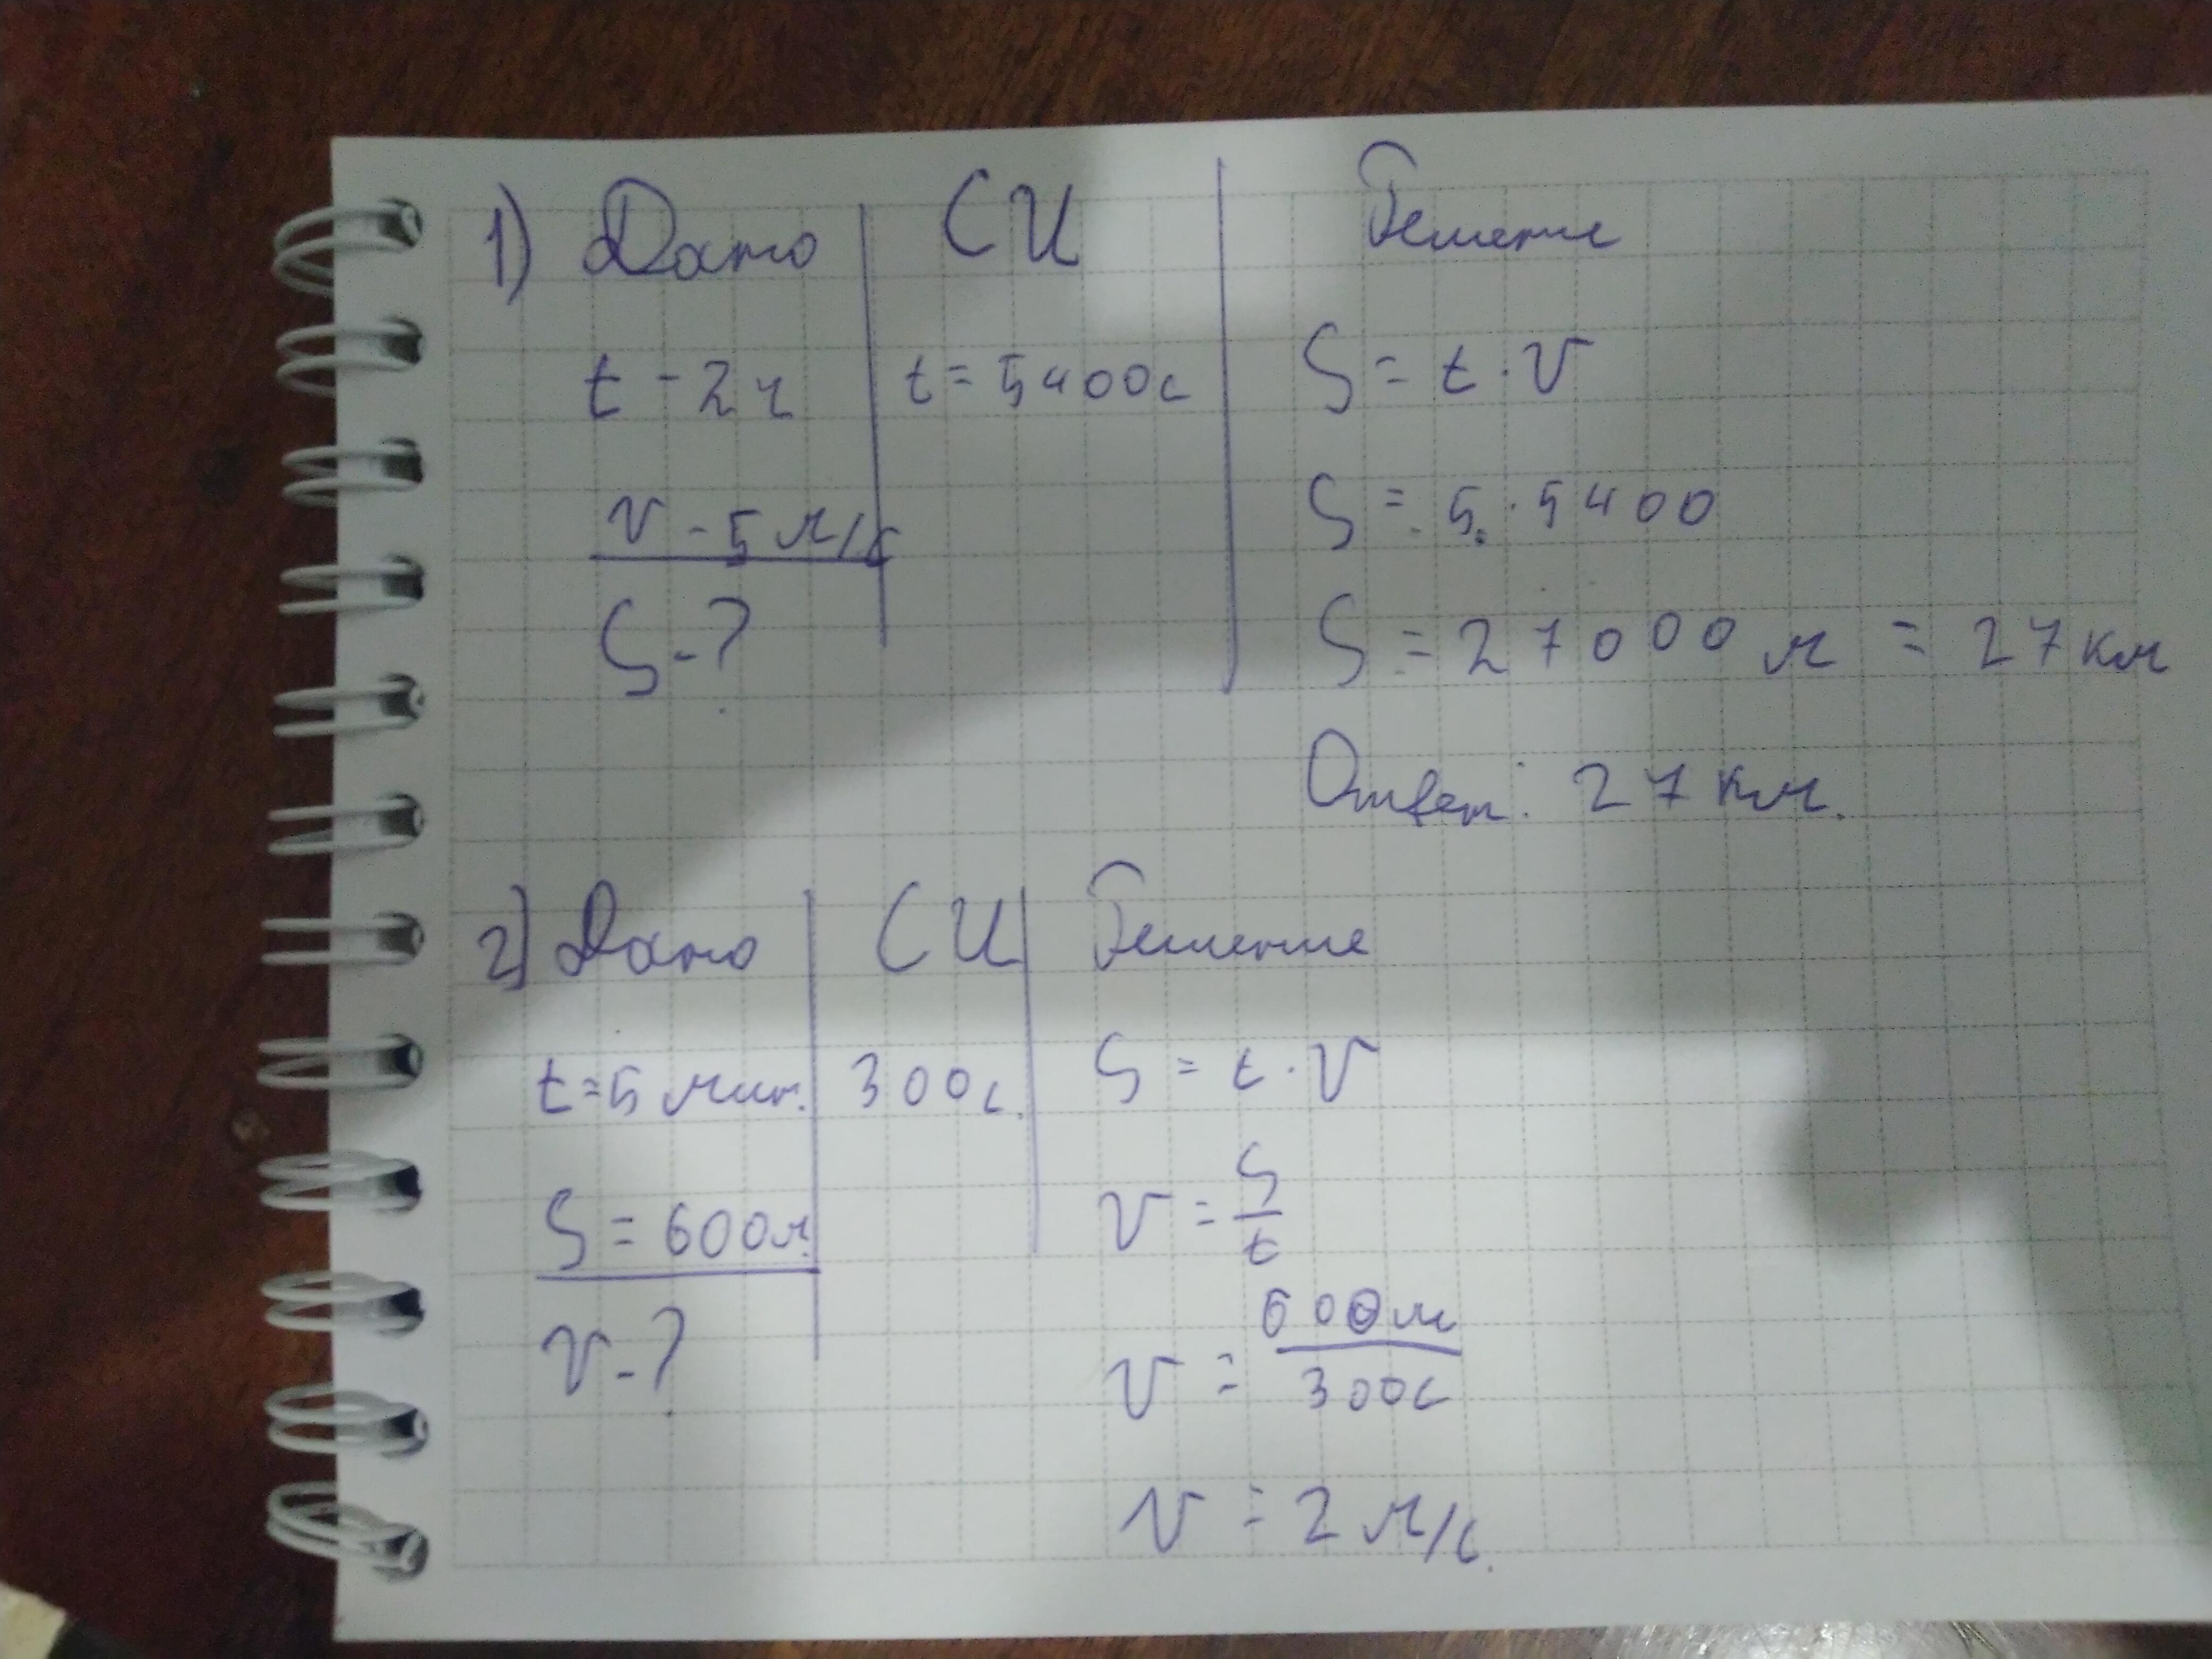 1) Дано СИ Решение
t - 2 ч t = 5400 с S = t · v
v - 5 м/с S = 5 · 5400
S - ? S = 27000 м = 27 км
Ответ: 27 км.
2) Дано СИ Решение
t = 5 мин. 300 с. S = t · v
S = 600 м v = S/t
v - ? v = 600 м / 300 с
v = 2 м/с.